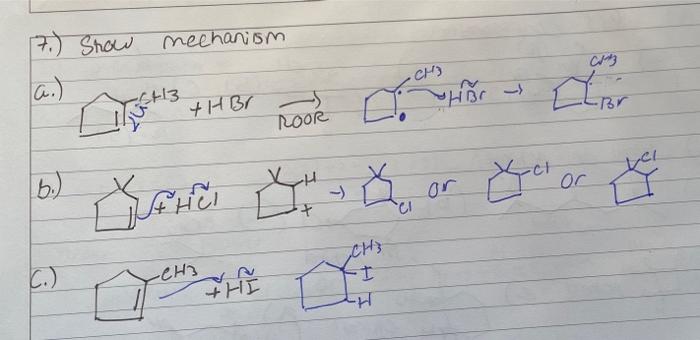 7.) Show mechanism
a.) CH3 + HBr → ROOR CH3 HBr → CH3 Br
b.) + HCl H + → Cl or Cl or Cl
c.) CH3 + HI CH3 I H